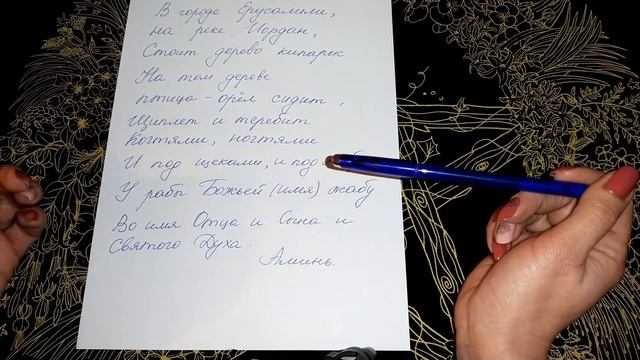 В городе Ерусалиме,
на реке Иордан,
Стоит дерево кипарис.
На том дереве
птица-орёл сидит,
Щиплет и теребит
Когтями, ногтями.
И под щеками, и под
У рабы Божьей (имя) жабу.
Во имя Отца и Сына и
Святого Духа.
Аминь.